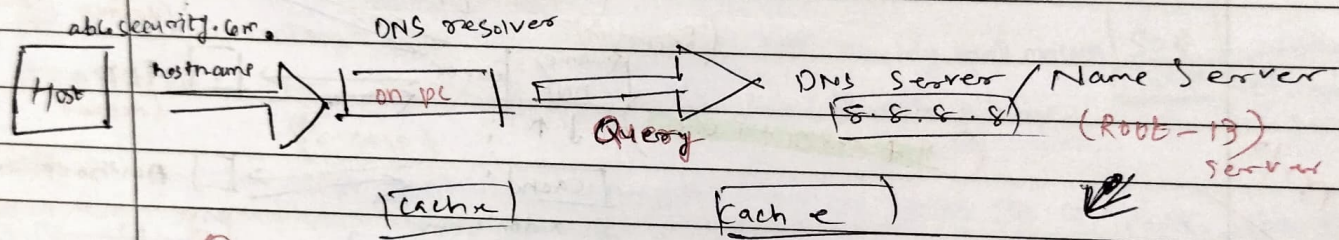 abc security.com. DNS resolver
Host hostname on pc Query DNS Server / Name Server
8.8.8.8 (Root-13)
server
cache cache